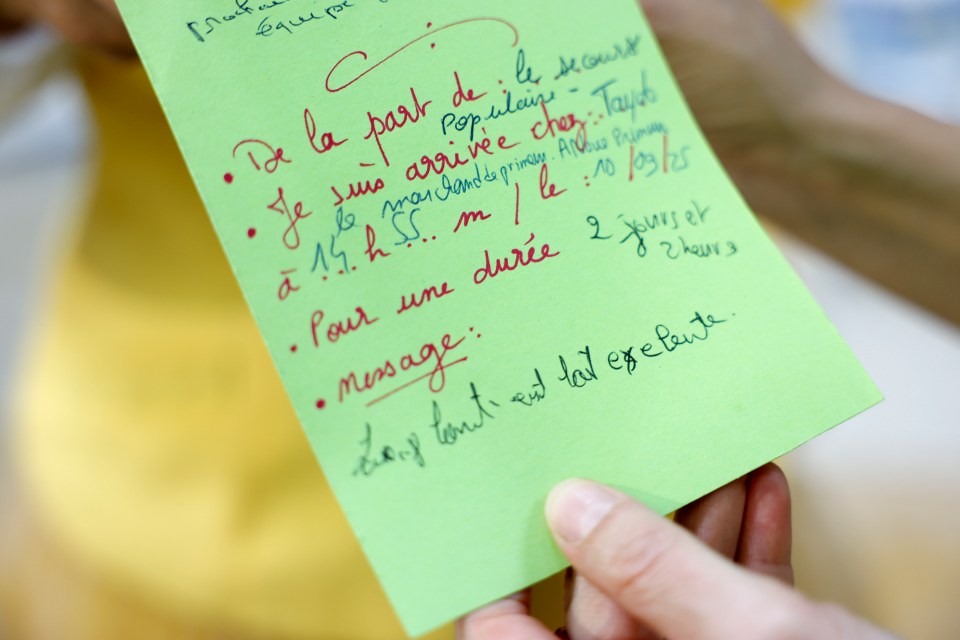 équipe
• De la part de : le secours
Populaire -
• Je suis arrivée chez : Tayob
le marchand de primeur.
à 14 h 55 m / le : 10/03/25
• Pour une durée 2 jours et
2 heures
• Message :
tout exelente.